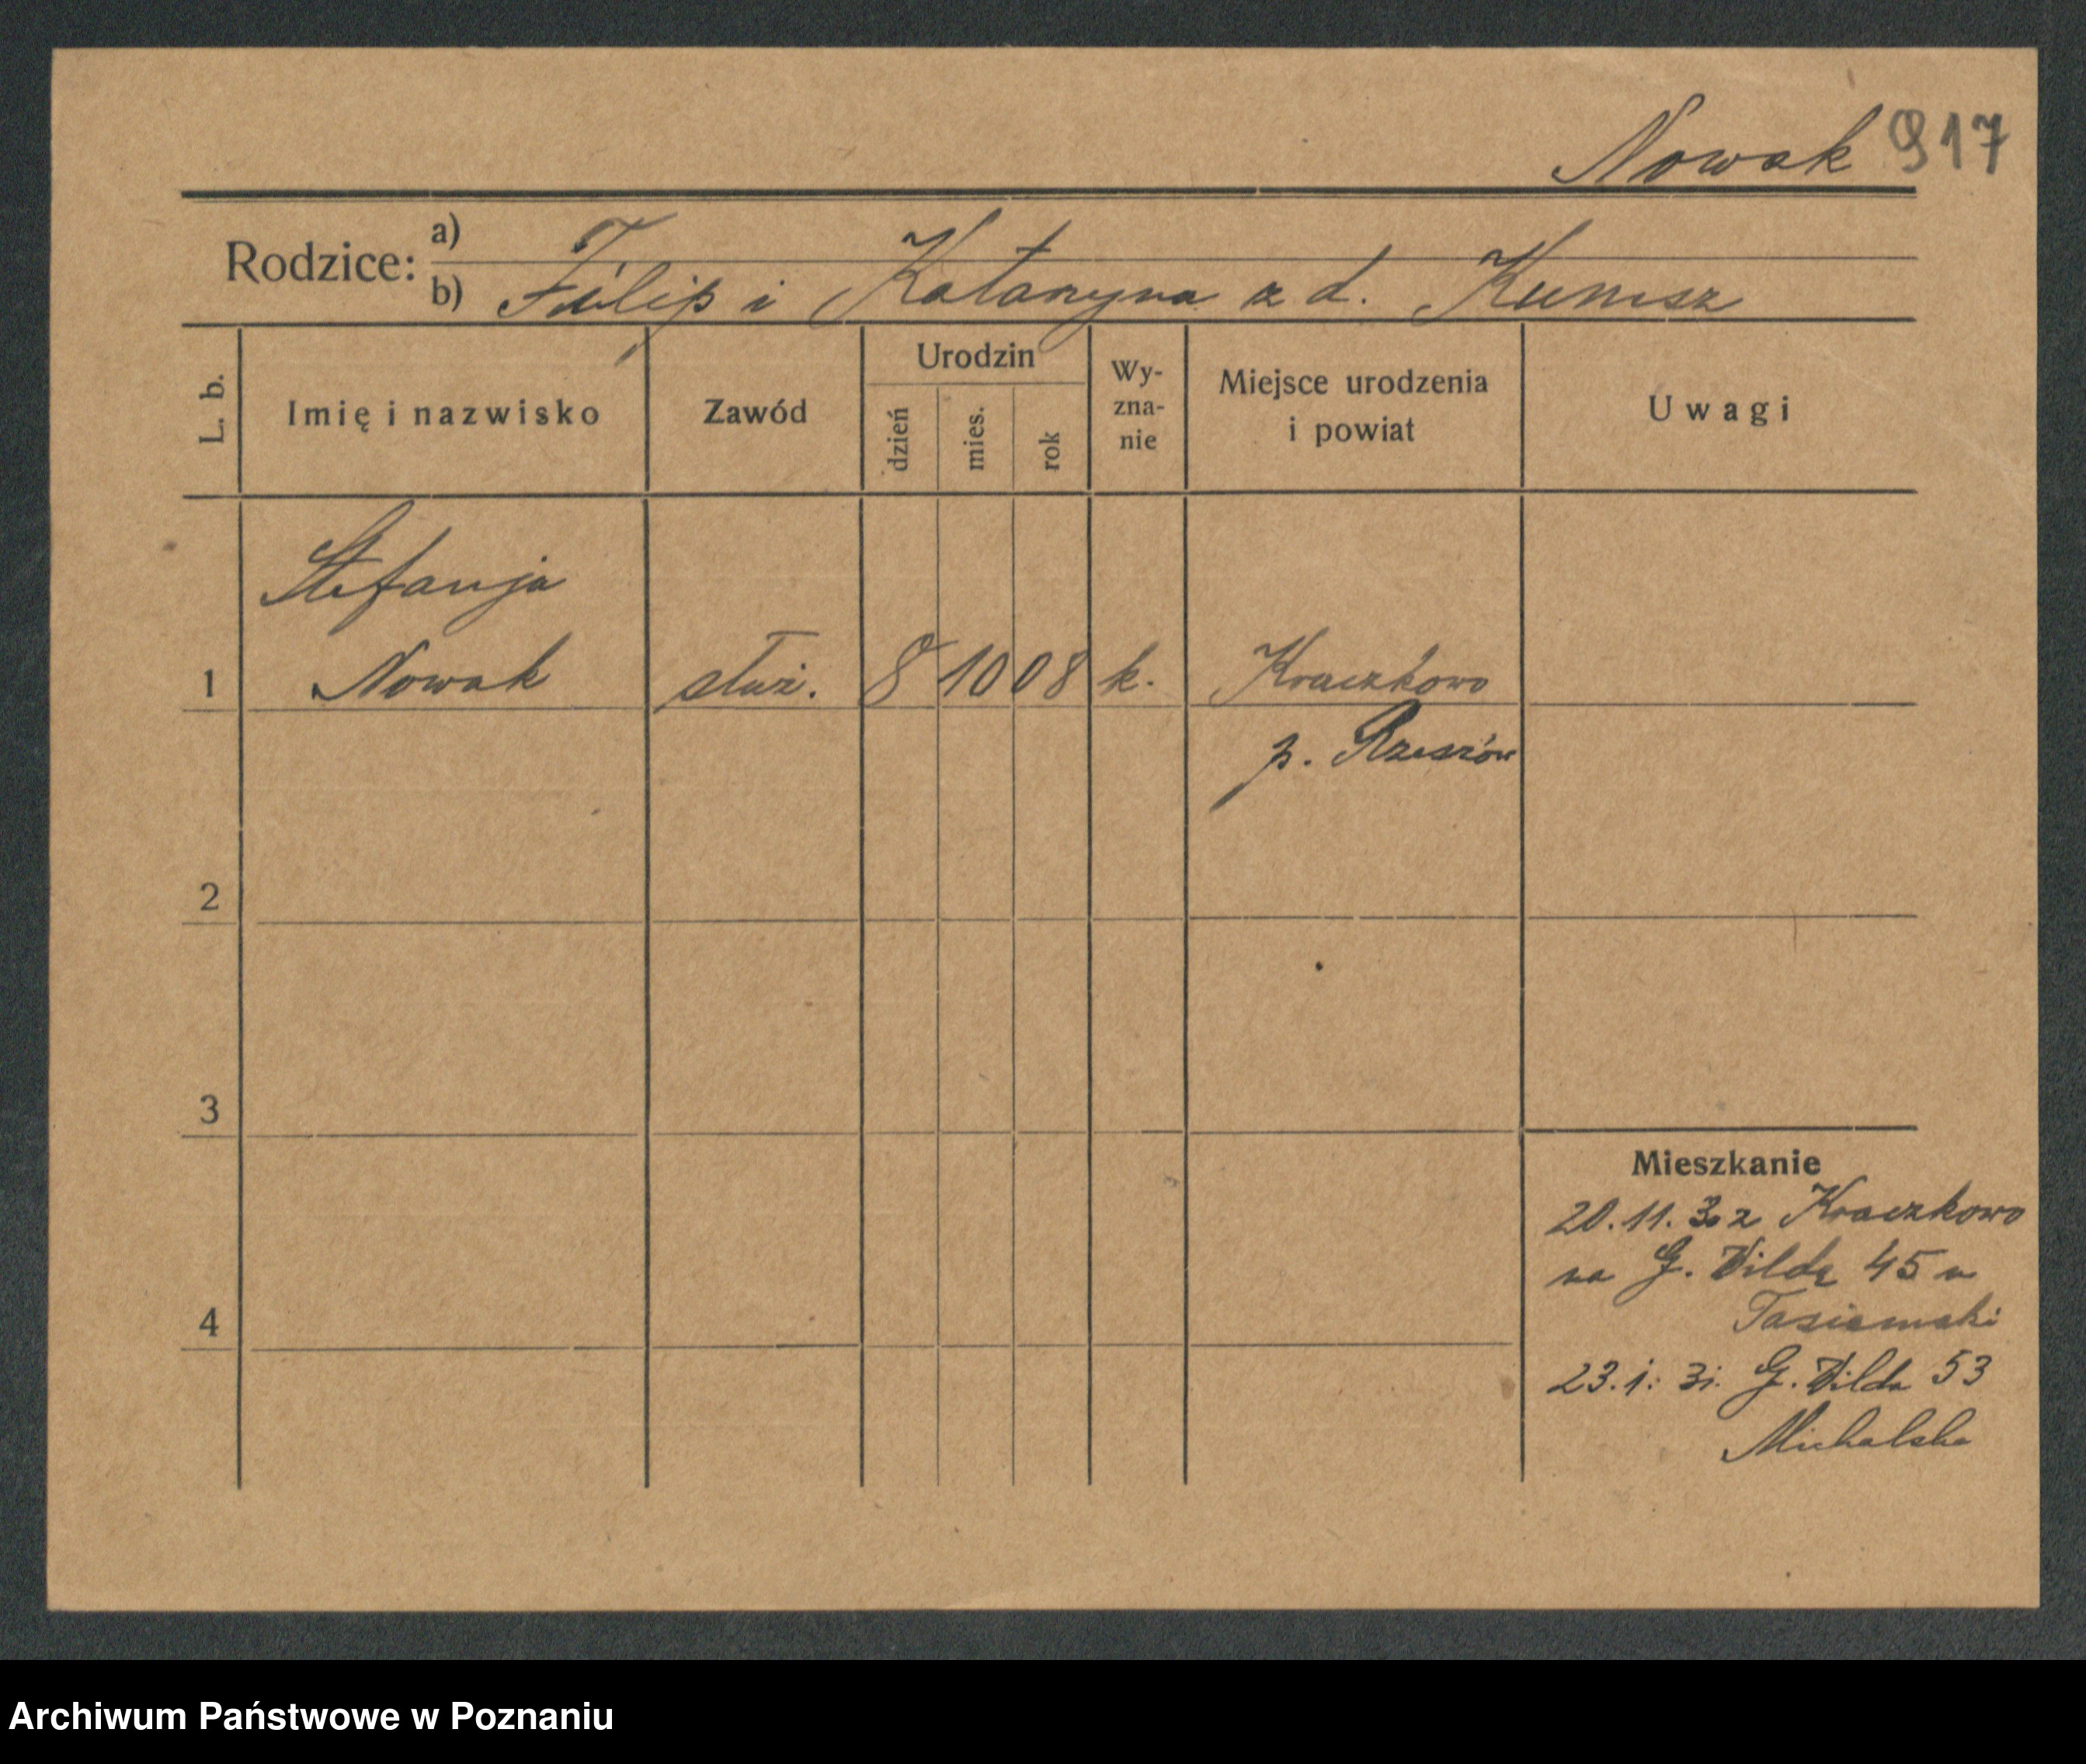 Nowak 917
Rodzice: a)
b) Filip i Katarzyna z d. Kunisz
L. b. Imię i nazwisko Zawód Urodzin dzień mies. rok Wy-zna-nie Miejsce urodzenia i powiat Uwagi
Stefanja
1 Nowak służ. 8 10 08 k. Kraczkowo
p. Rzeszów
2
3
Mieszkanie
20.11.30 z Kraczkowo
na G. Wildę 45 u
4
23.1.31. G. Wilda 53
Michalska
Archiwum Państwowe w Poznaniu